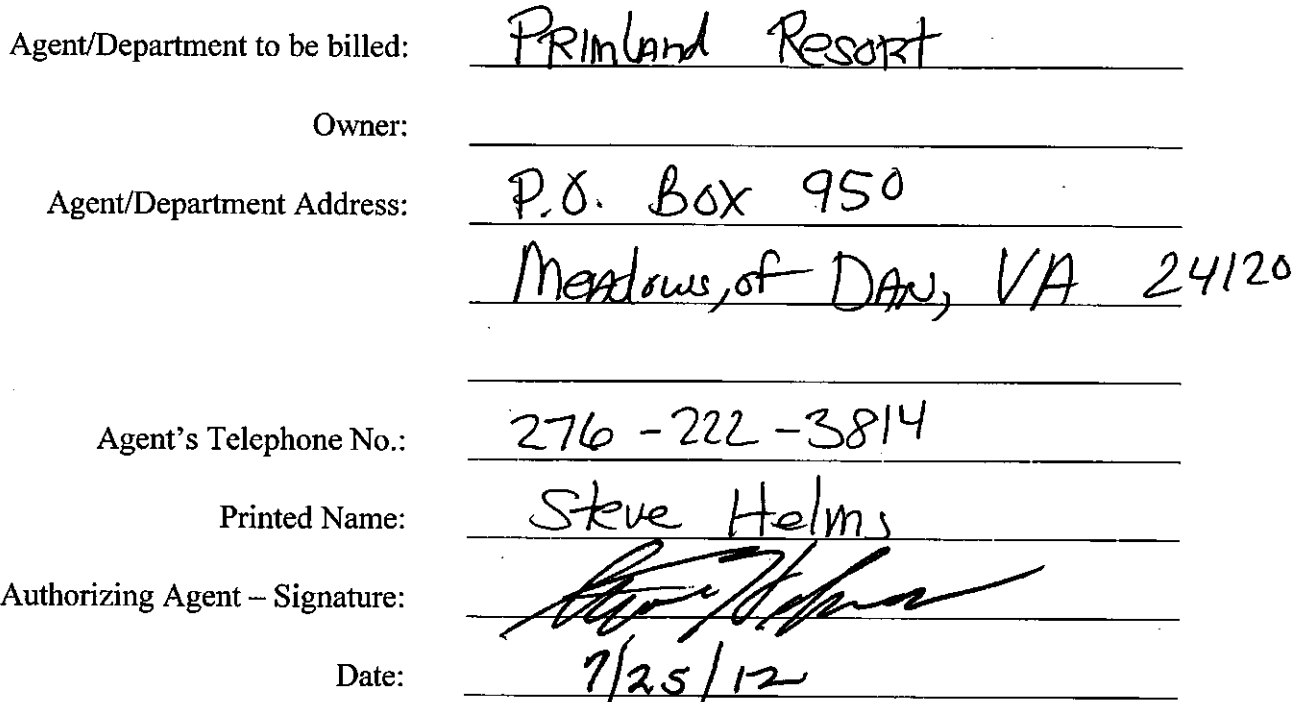 Agent/Department to be billed: PRimland Resort
Owner:
Agent/Department Address: P.O. Box 950
Meadows, of DAN, VA 24120
Agent's Telephone No.: 276-222-3814
Printed Name: Steve Helms
Authorizing Agent – Signature: Steve Helms
Date: 7/25/12